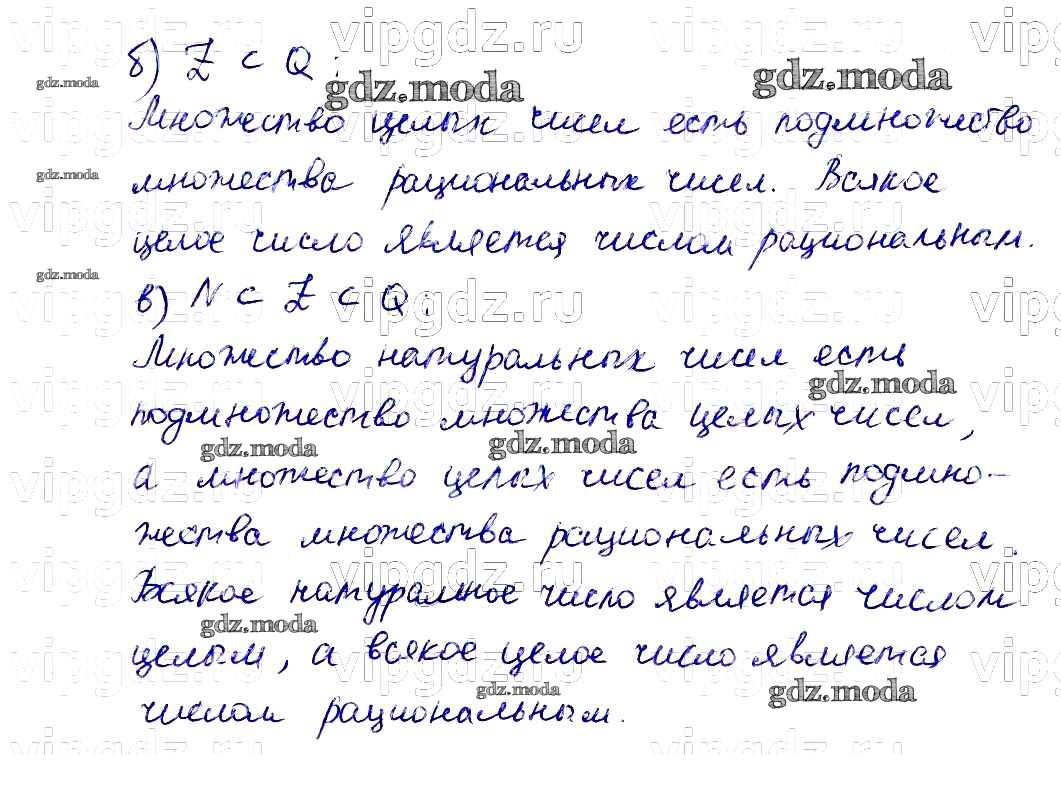 б) Z ⊂ Q :
Множество целых чисел есть подмножество
множества рациональных чисел. Всякое
целое число является числом рациональным.
в) N ⊂ Z ⊂ Q.
Множество натуральных чисел есть
подмножество множества целых чисел,
а множество целых чисел есть подмно-
жества множества рациональных чисел.
Всякое натуральное число является числом
целым, а всякое целое число является
числом рациональным.
gdz.moda
vipgdz.ru